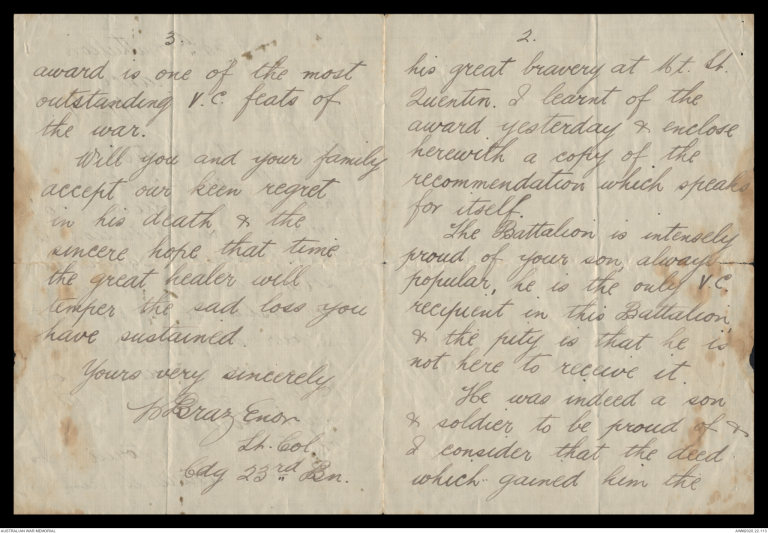 2.
his great bravery at Mt. St.
Quentin. I learnt of the
award yesterday & enclose
herewith a copy of the
recommendation which speaks
for itself.
The Battalion is intensely
proud of your son, always
popular, he is the only V.C.
recipient in this Battalion,
& the pity is that he is
not here to receive it.
He was indeed a son
& soldier to be proud of &
I consider that the deed
which gained him the
3.
award is one of the most
outstanding V.C. feats of
the war.
Will you and your family
accept our keen regret
in his death, & the
sincere hope that time
the great healer will
temper the sad loss you
have sustained.
Yours very sincerely
Brazenor
Lt. Col.
Cdg 23rd Bn.
AUSTRALIAN WAR MEMORIAL